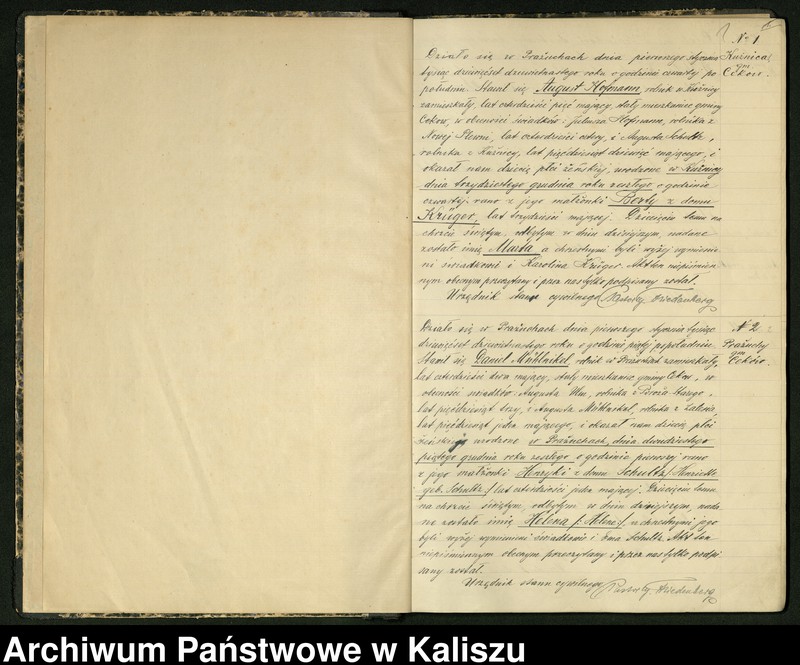 № 1
Działo się w Prażuchach dnia pierwszego stycznia
Kuźnica
tysiąc dziewięćset dziewiętnastego roku o godzinie czwartej po
gm
Ceków.
południu. Stawił się August Hofmann, rolnik w Kuźnicy
zamieszkały, lat czterdzieści pięć mający, stały mieszkaniec gminy
Ceków, w obecności świadków: Juliusza Hofmann, rolnika z
Nowej Plewni, lat czterdzieści cztery, i Augusta Schultz,
rolnika z Kuźnicy, lat pięćdziesiąt dziewięć mającego, i
okazał nam dziecię płci żeńskiej, urodzone w Kuźnicy
dnia trzydziestego grudnia roku zeszłego o godzinie
czwartej rano z jego małżonki Berty z domu
Krüger, lat trzydzieści mającej. Dziecięciu temu na
chrzcie świętym, odbytym w dniu dzisiejszym, nadane
zostało imię Marta, a chrzestnymi byli wyżej wymienie-
ni świadkowie i Karolina Krüger. Akt ten niepiśmien-
nym obecnym przeczytany i przez nas tylko podpisany został.
Urzędnik stanu cywilnego
№ 2.
Działo się w Prażuchach dnia pierwszego stycznia tysiąc
dziewięćset dziewiętnastego roku o godzinie piątej popołudniu.
Prażuchy
gm
Ceków.
Stawił się Daniel Mühlnikel, rolnik w Prażuchach zamieszkały,
lat czterdzieści dwa mający, stały mieszkaniec gminy Ceków, w
obecności świadków: Augusta Ulm, rolnika z Beroza Starego,
lat pięćdziesiąt trzy, i Augusta Mühlnikel, rolnika z
lat pięćdziesiąt jeden mającego, i okazał nam dziecię płci
żeńskiej urodzone w Prażuchach, dnia dwudziestego
piątego grudnia roku zeszłego o godzinie pierwszej rano
z jego małżonki Henryki z domu Schultz /: Henriette
geb. Schultz :/ lat czterdzieści jeden mającej. Dziecięciu temu
na chrzcie świętym, odbytym w dniu dzisiejszym, nada-
ne zostało imię Helena /: Helene :/ a chrzestnymi jego
byli wyżej wymienieni świadkowie i Ema Schultz. Akt ten
niepiśmiennym obecnym przeczytany i przez nas tylko podpi-
sany został.
Urzędnik stanu cywilnego
Archiwum Państwowe w Kaliszu